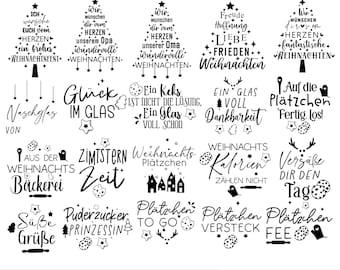 Wir
wünschen
EUCH VON
HERZEN
ein frohes
WEIHNACHTSFEST!
Wir
wünschen
dir VOM
HERZEN
unserem Opa
Wundervolle
WEIHNACHTEN
Wir
wünschen
dir VOM
HERZEN
unserer Oma
Wundervolle
WEIHNACHTEN
Freude
Hoffnung
LIEBE
FRIEDEN
Weihnachten
Wir
WÜNSCHEN
HERZEN
fantastische
WEIHNACHTEN
Naschglas
VON
Glück
IM GLAS
Ein Keks
IST NICHT DIE LÖSUNG,
Ein Glas
VOLL SCHON
EIN GLAS
VOLL
Dankbarkeit
Auf die
Plätzchen
Fertig los!
AUS DER
WEIHNACHTS
Bäckerei
ZIMTSTERN
Zeit
Weihnachts
Plätzchen
WEIHNACHTS
Kalorien
ZÄHLEN NICHT
Versüße
DIR DEN
Tag
Süße
Grüße
Puderzucker
PRINZESSIN
Plätzchen
TO GO
Plätzchen
VERSTECK
Plätzchen
FEE